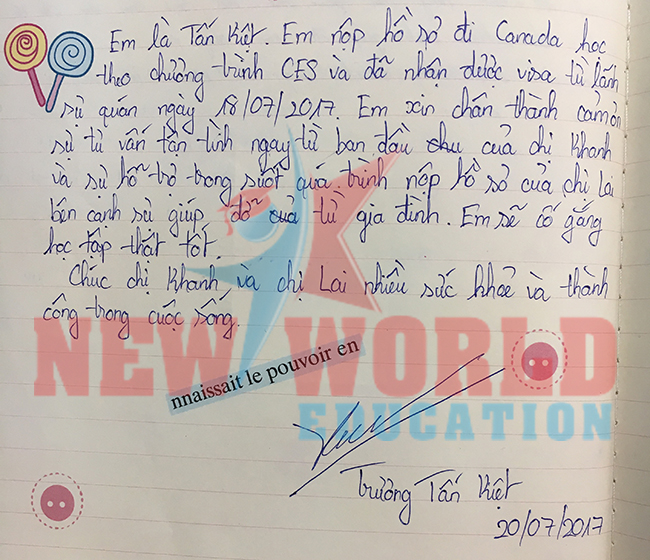 Em là Tấn Kiệt. Em nộp hồ sơ đi Canada học
theo chương trình CES và đã nhận được visa từ lãnh
sự quán ngày 18/07/2017. Em xin chân thành cảm ơn
sự tư vấn tận tình ngay từ ban đầu của chị Khanh
và sự hỗ trợ trong suốt quá trình nộp hồ sơ của chị Lai
bên cạnh sự giúp đỡ từ gia đình. Em sẽ cố gắng
học tập thật tốt.
Chúc chị Khanh và chị Lai nhiều sức khoẻ và thành
công trong cuộc sống.
NEW WORLD
EDUCATION
nnaissait le pouvoir en
Trương Tấn Kiệt
20/07/2017